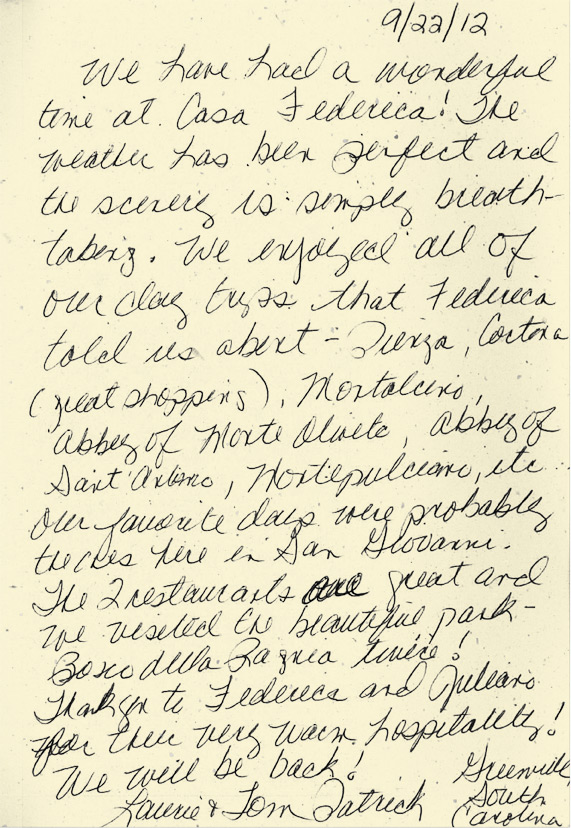 9/22/12
We have had a wonderful
time at Casa Federica! The
weather has been perfect and
the scenery is simply breath-
taking. We enjoyed all of
our day trips that Federica
told us about - Pienza, Cortona
(great shopping), Montalcino,
Abbey of Monte Oliveto, Abbey of
Sant'Antimo, Montepulciano, etc..
Our favorite days were probably
the ones here in San Giovanni.
The 2 restaurants are great and
we visited the beautiful park-
Bosco della Ragnaia twice!
Thank you to Federica and Juliano
for their very warm hospitality!
We will be back!
Laurie & Tom Patrick
Greenville,
South
Carolina